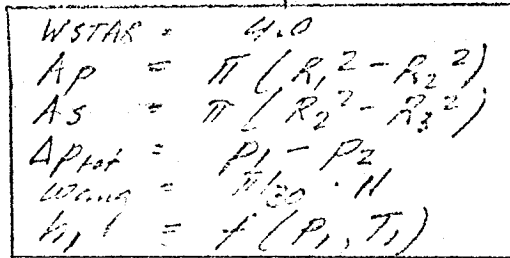 WSTAR = 4.0
Ap = π (R₁² - R₂²)
As = π (R₂² - R₃²)
Δp_tot = P₁ - P₂
wang = π/30 · N
h₁ = f (P₁, T₁)